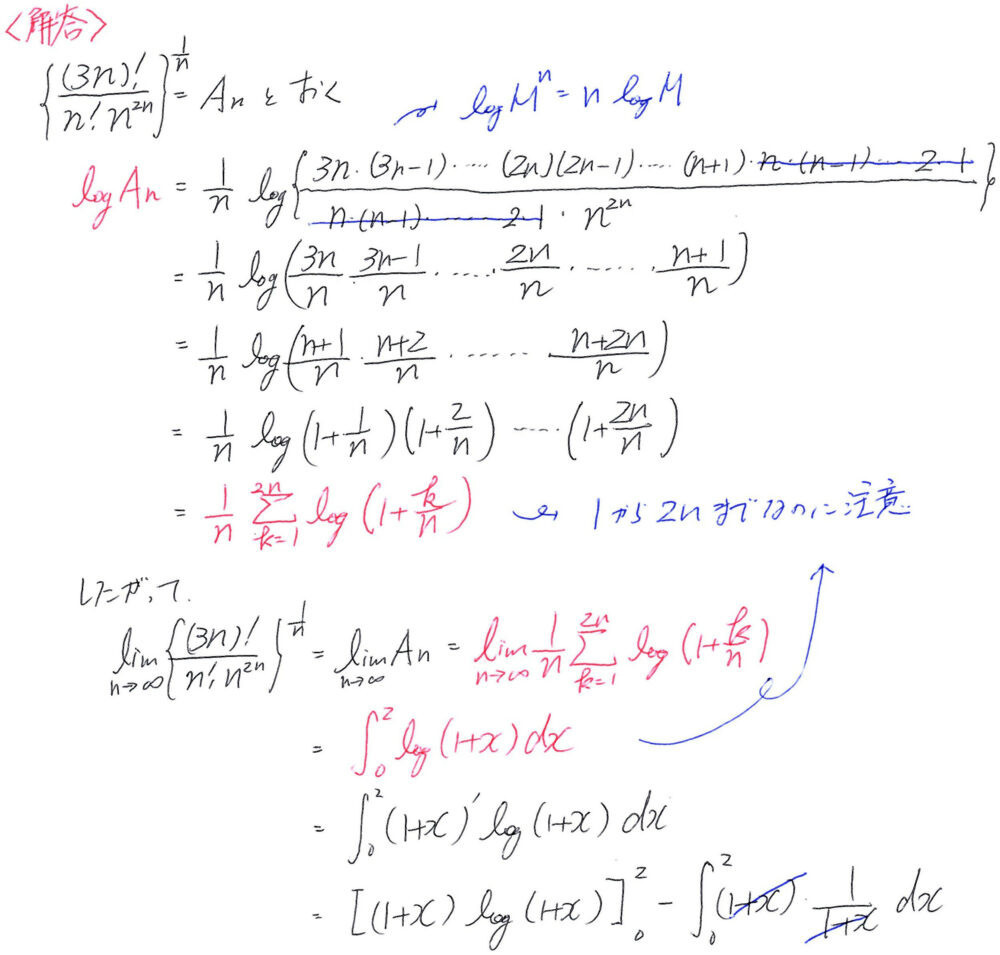 <解答>
{(3n)!/(n! n^{2n})}^{1/n} = An とおく
→ log M^n = n log M
log An = 1/n log{(3n·(3n-1)·…·(2n)(2n-1)·…·(n+1)·n·(n-1)·…2·1)/(n·(n-1)……2·1·n^{2n})}
= 1/n log(3n/n · 3n-1/n · …… 2n/n · …… · n+1/n)
= 1/n log(n+1/n · n+2/n · …… · n+2n/n)
= 1/n log(1+1/n)(1+2/n) …… (1+2n/n)
= 1/n Σ_{k=1}^{2n} log(1+k/n) → 1から2nまでなのに注意
したがって、
lim_{n→∞} {(3n)!/(n! n^{2n})}^{1/n} = lim_{n→∞} An = lim_{n→∞} 1/n Σ_{k=1}^{2n} log(1+k/n)
= ∫_0^2 log(1+x) dx
= ∫_0^2 (1+x)' log(1+x) dx
= [(1+x) log(1+x)]_0^2 - ∫_0^2 (1+x)· 1/(1+x) dx